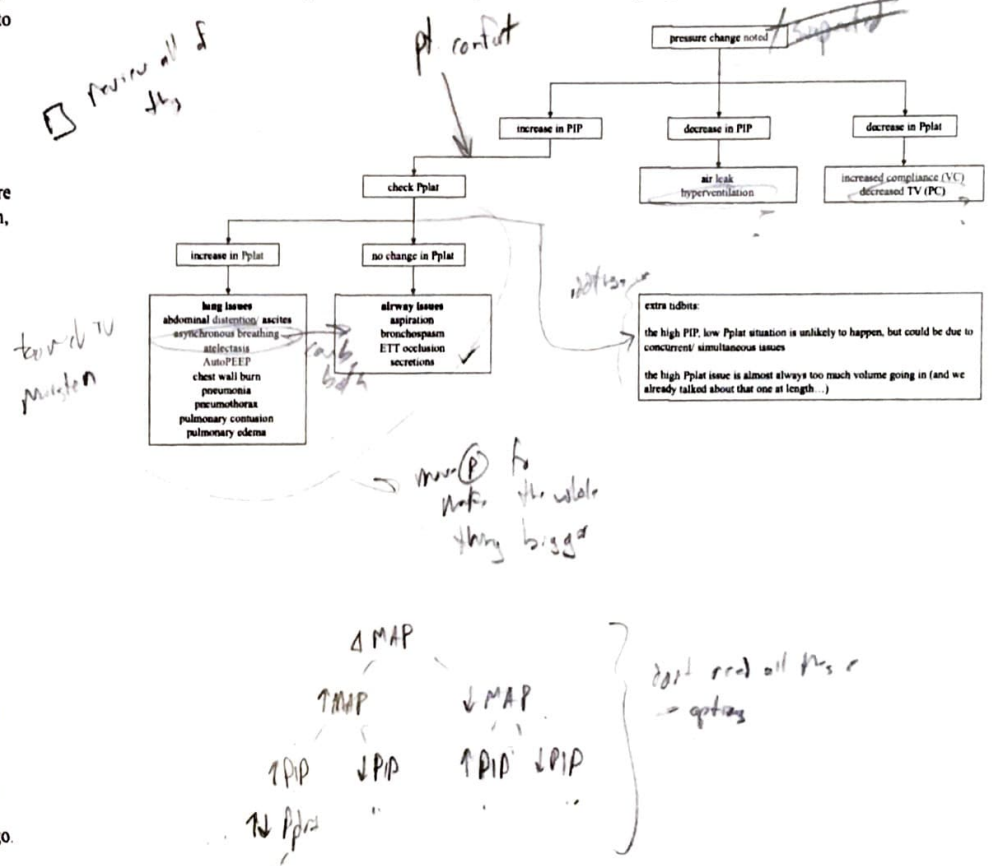 to
review all of
pt. comfort
pressure change noted
increase in PIP
decrease in PIP
decrease in Pplat
check Pplat
air leak
hyperventilation
increased compliance (VC)
decreased TV (PC)
re
n,
increase in Pplat
no change in Pplat
lung issues
abdominal distention/ ascites
asynchronous breathing
atelectasis
AutoPEEP
chest wall burn
pneumonia
pneumothorax
pulmonary contusion
pulmonary edema
airway issues
aspiration
bronchospasm
ETT occlusion
secretions
could be
both
extra tidbits:
the high PIP, low Pplat situation is unlikely to happen, but could be due to
concurrent/ simultaneous issues
the high Pplat issue is almost always too much volume going in (and we
already talked about that one at length…)
TV
move P to
make the whole
thing bigger
Δ MAP
↑MAP
↓ MAP
↑PIP
↓PIP
↑PIP
↓PIP
↑↓ Pplat
don't need all these
→ options
go.